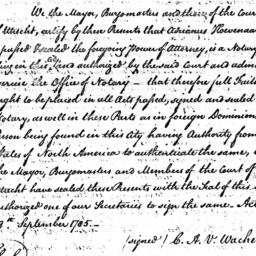 We the Mayor, Burgomasters and of the Cour
Utrecht, certify by these Presents that Adrianus Hoevenaar
passed the foregoing Power of Attorney, is a Notary
in this authorized by the said Court and adm
the Office of Notary — that therefore full Faith
ought to be placed in all Acts passed, signed and sealed
Notary, as well in these Parts as in foreign Dominion
being found in this City having Authority from
States of North America to authenticate the same,
the Mayor, Burgomasters and Members of the Court of
have sealed these Presents with the Seal of this
authorized one of our Secretaries to sign the same. Ac
September 1785.
(signed) C. A. V. Wache